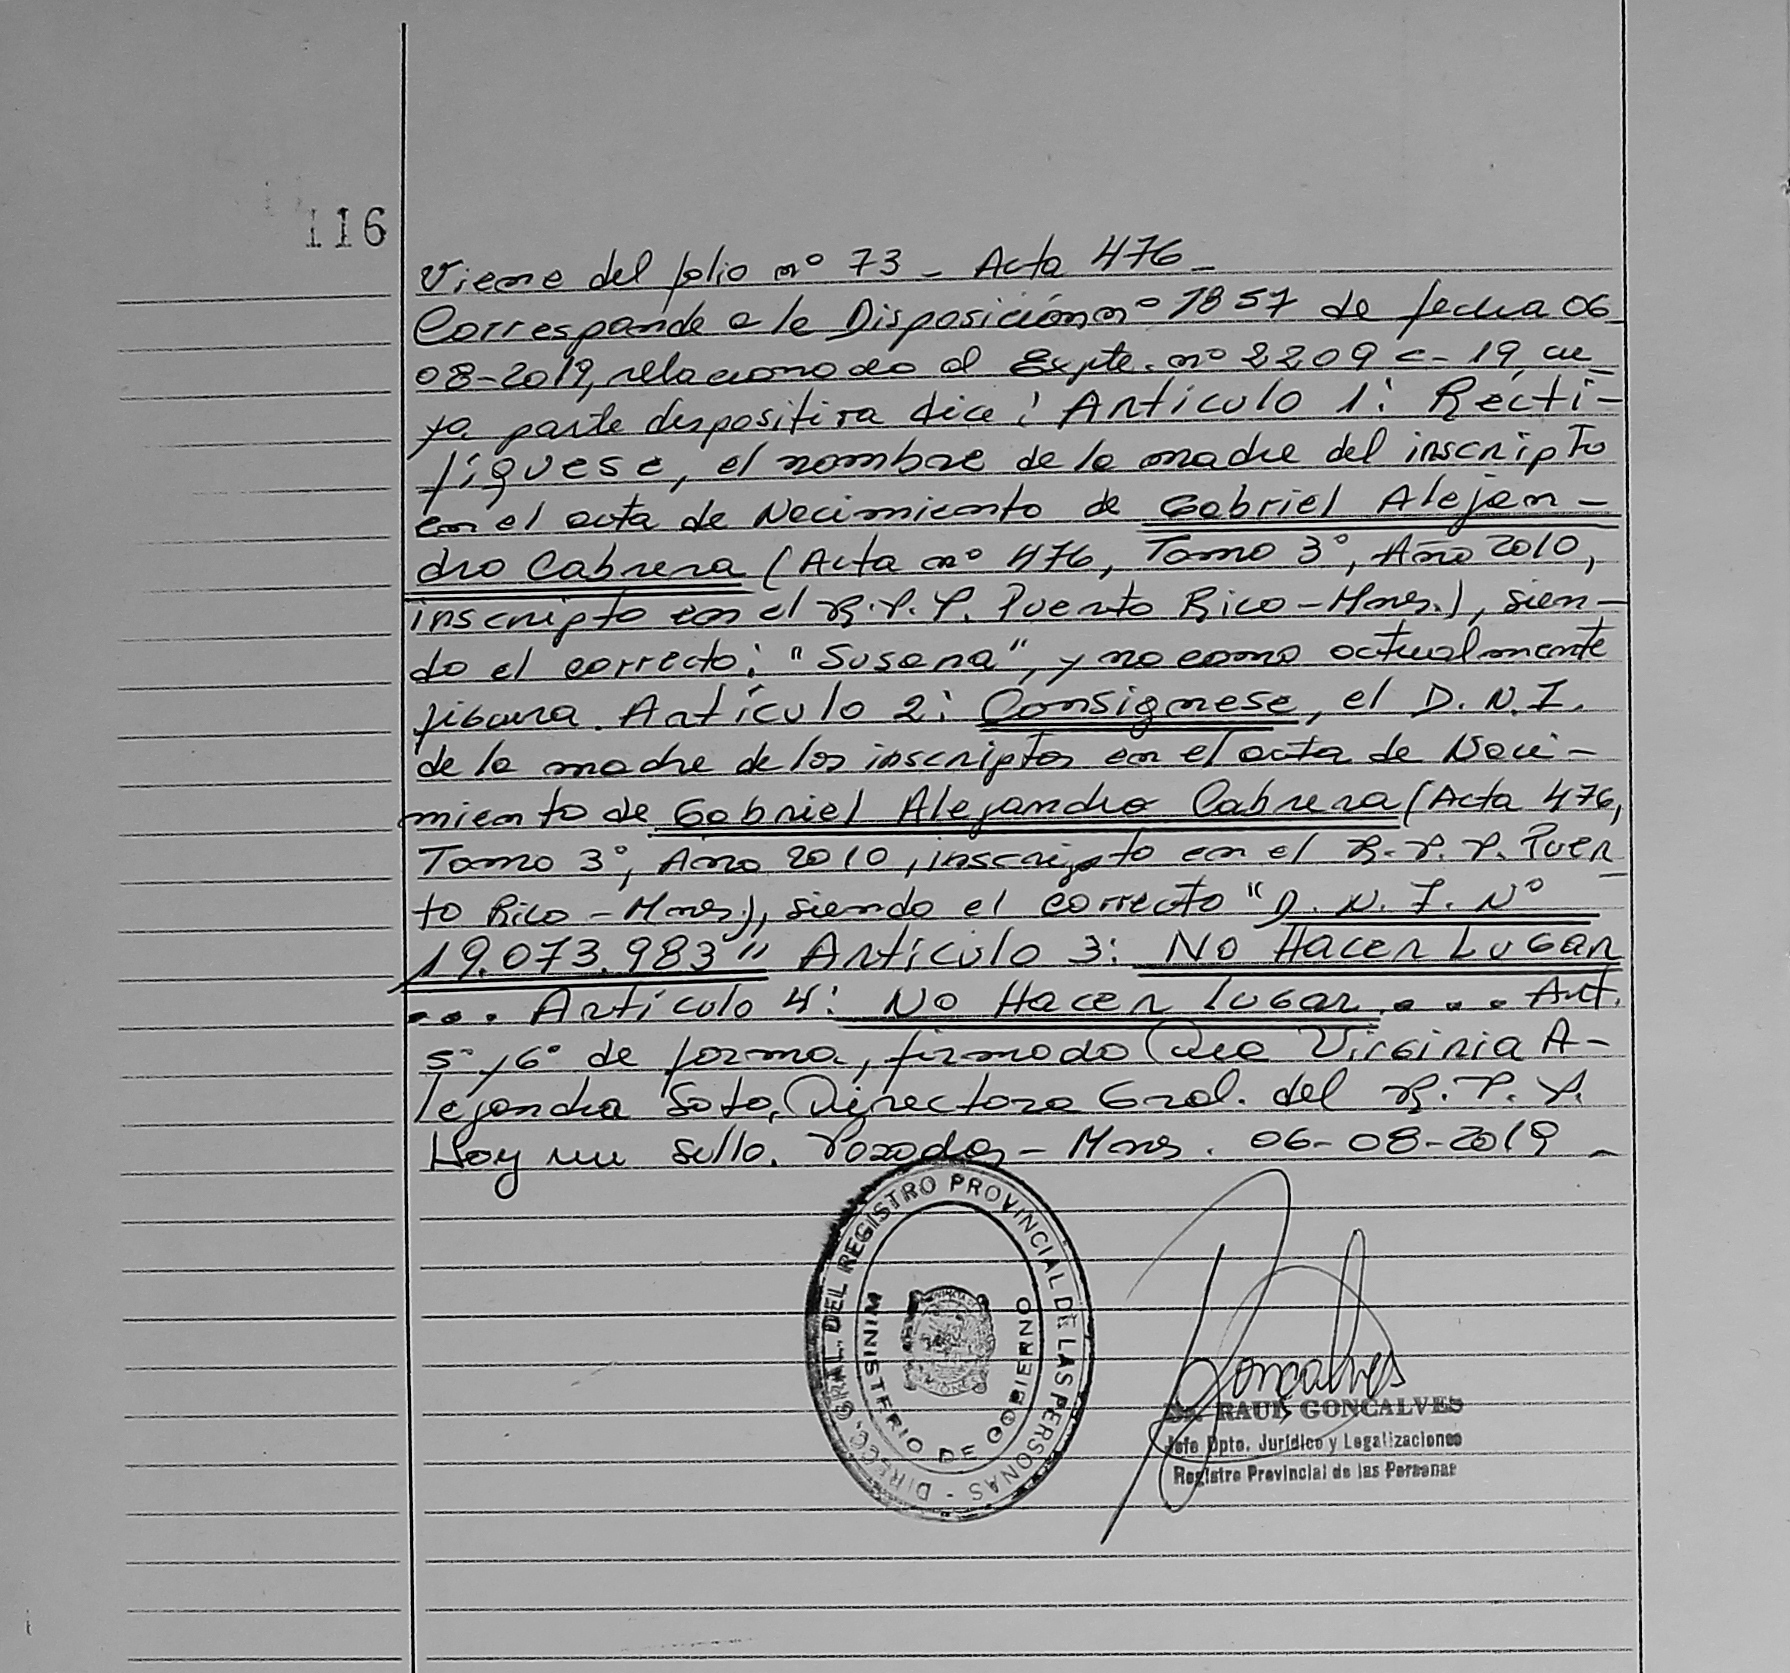 116
Viene del folio nº 73 - Acta 476 -
Corresponde a la Disposición nº 1857 de fecha 06
08-2019, relacionado al Expte. nº 2209 c- 19, cu
ya parte dispositiva dice: Artículo 1: Recti-
fiquese, el nombre de la madre del inscripto
en el acta de Nacimiento de Gabriel Alejan-
dro Cabrera (Acta nº 476, Tomo 3°, Año 2010,
inscripto en el R.P.P. Puerto Rico - Mnes.), sien-
do el correcto: "Susana", y no como actualmente
figura. Artículo 2: Consignese, el D.N.I.
de la madre de los inscriptos en el acta de Naci-
miento de Gabriel Alejandro Cabrera (Acta 476,
Tomo 3°, Año 2010, inscripto en el R.P.P. Puer
to Rico - Mnes), siendo el correcto "D.N.I. Nº
19.073.983" Artículo 3: No Hacer Lugar
... Artículo 4: No Hacer Lugar... Art.
5° y 6° de forma, firmado Dra Virginia A-
lejandra Soto, Directora Gral. del R.P.P.
Hay un sello. Posadas - Mnes. 06-08-2019 -
DIRECC. GRAL. DEL REGISTRO PROVINCIAL DE LAS PERSONAS -
MINISTERIO DE GOBIERNO
Goncalves
Dr. RAUL GONCALVES
Jefe Dpto. Jurídico y Legalizaciones
Registro Provincial de las Personas